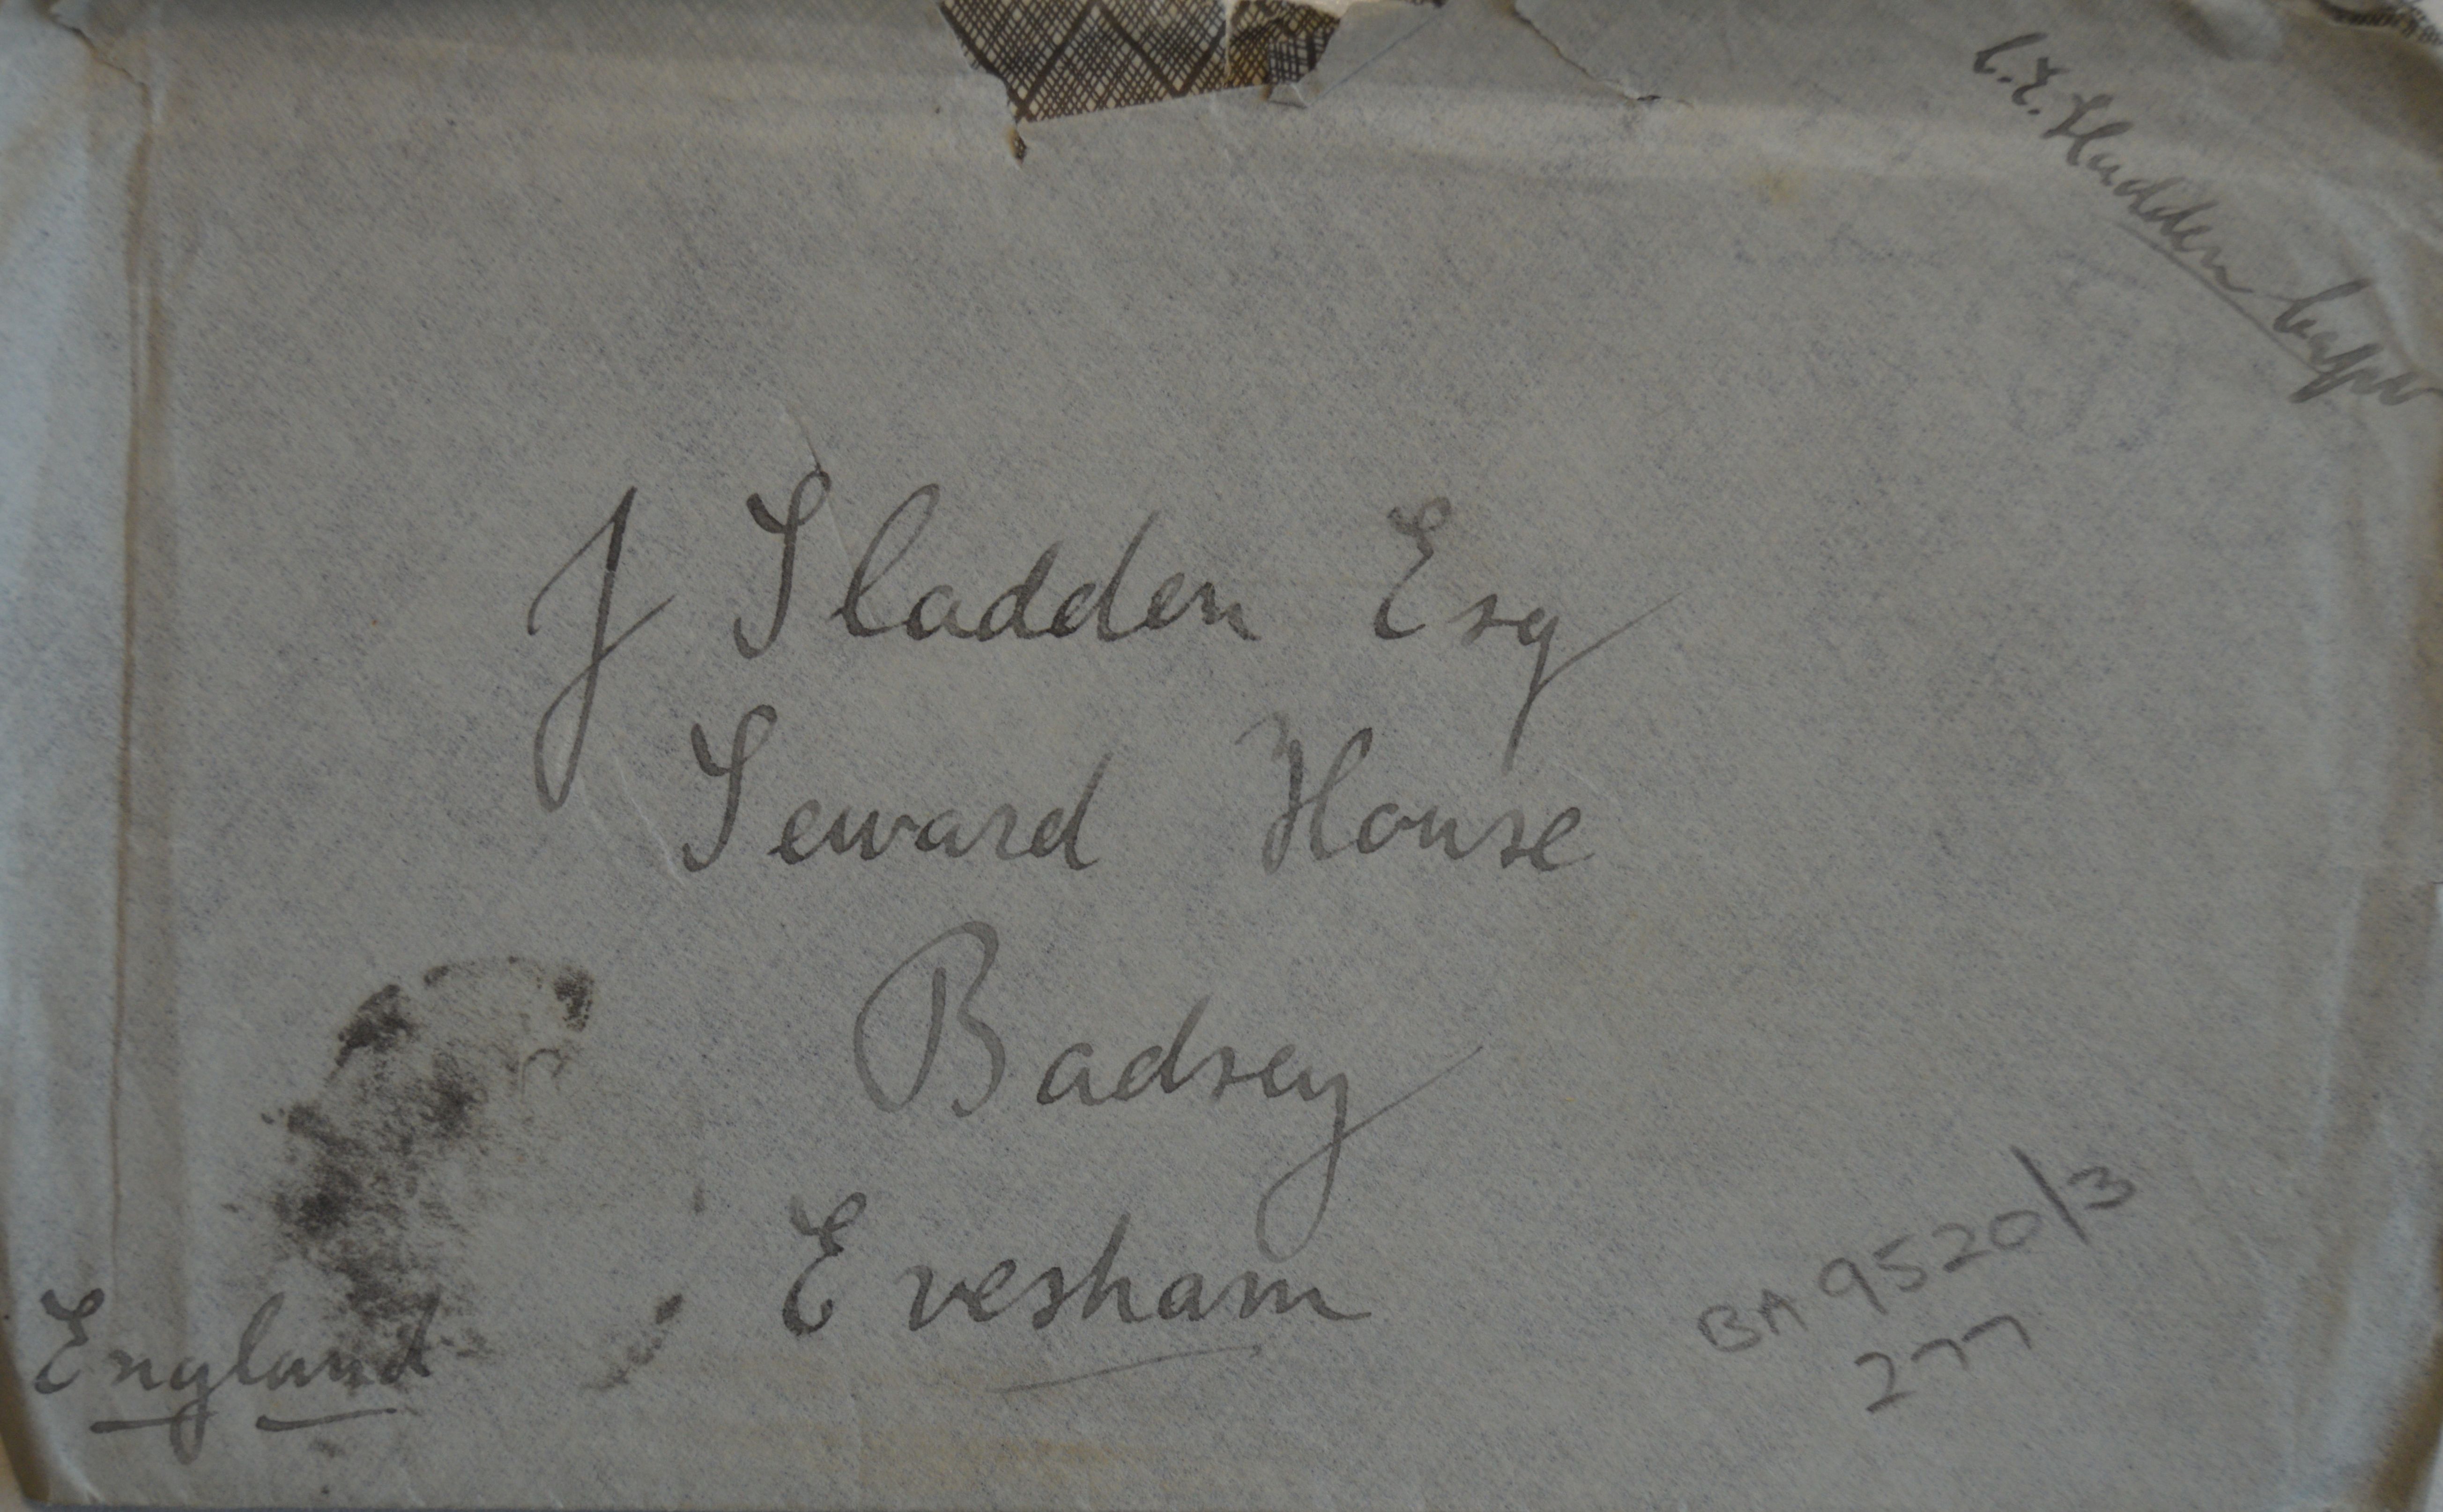 C.E. Sladden Capt
J Sladden Esq
Seward House
Badsey
Evesham
England
BA 9520/3
277